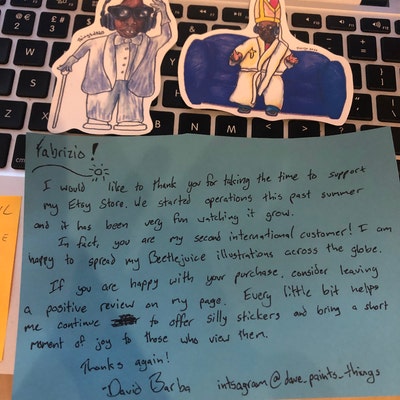 Fabrizio!
I would like to thank you for taking the time to support
my Etsy Store. We started operations this past summer
and it has been very fun watching it grow.
In fact, you are my second international customer! I am
happy to spread my Beetlejuice illustrations across the globe.
If you are happy with your purchase, consider leaving
a positive review on my page. Every little bit helps
me continue to offer silly stickers and bring a short
moment of joy to those who view them.
Thanks again!
-David Barba intsagram@dave_paints_things